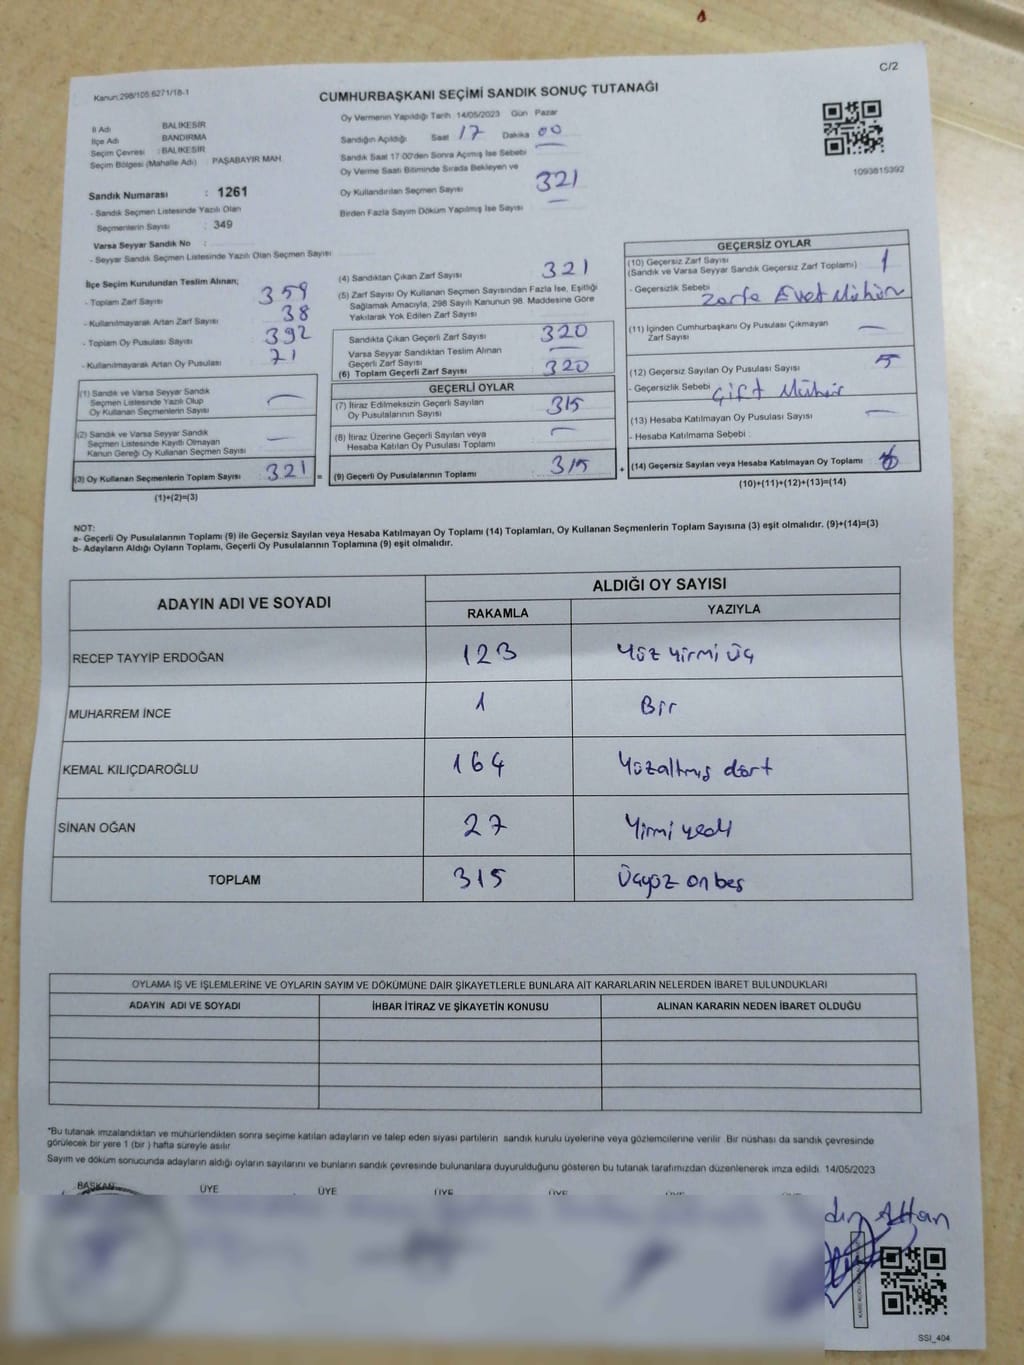 C/2
Kanun:298/105.6271/18-1
CUMHURBAŞKANI SEÇİMİ SANDIK SONUÇ TUTANAĞI
İl Adı BALIKESİR
İlçe Adı BANDIRMA
Seçim Çevresi : BALIKESİR
Seçim Bölgesi (Mahalle Adı) : PAŞABAYIR MAH.
Sandık Numarası : 1261
- Sandık Seçmen Listesinde Yazılı Olan
Seçmenlerin Sayısı : 349
Varsa Seyyar Sandık No :
- Seyyar Sandık Seçmen Listesinde Yazılı Olan Seçmen Sayısı
Oy Vermenin Yapıldığı Tarih 14/05/2023 Gün Pazar
Sandığın Açıldığı Saat 17 Dakika 00
Sandık Saat 17:00'den Sonra Açılmış İse Sebebi
Oy Verme Saati Bitiminde Sırada Bekleyen ve
Oy Kullandırılan Seçmen Sayısı 321
Birden Fazla Sayım Döküm Yapılmış İse Sayısı
1093815392
İlçe Seçim Kurulundan Teslim Alınan;
- Toplam Zarf Sayısı 359
- Kullanılmayarak Artan Zarf Sayısı 38
- Toplam Oy Pusulası Sayısı 392
- Kullanılmayarak Artan Oy Pusulası 71
(1) Sandık ve Varsa Seyyar Sandık
Seçmen Listesinde Yazılı Olup
Oy Kullanan Seçmenlerin Sayısı —
(2) Sandık ve Varsa Seyyar Sandık
Seçmen Listesinde Kayıtlı Olmayan
Kanun Gereği Oy Kullanan Seçmen Sayısı —
(3) Oy Kullanan Seçmenlerin Toplam Sayısı 321 =
(1)+(2)=(3)
(4) Sandıktan Çıkan Zarf Sayısı 321
(5) Zarf Sayısı Oy Kullanan Seçmen Sayısından Fazla İse, Eşitliği
Sağlamak Amacıyla, 298 Sayılı Kanunun 98. Maddesine Göre
Yakılarak Yok Edilen Zarf Sayısı
Sandıkta Çıkan Geçerli Zarf Sayısı 320
Varsa Seyyar Sandıktan Teslim Alınan
Geçerli Zarf Sayısı —
(6) Toplam Geçerli Zarf Sayısı 320
GEÇERLİ OYLAR
(7) İtiraz Edilmeksizin Geçerli Sayılan
Oy Pusulalarının Sayısı 315
(8) İtiraz Üzerine Geçerli Sayılan veya
Hesaba Katılan Oy Pusulası Toplamı —
(9) Geçerli Oy Pusulalarının Toplamı 315 +
GEÇERSİZ OYLAR
(10) Geçersiz Zarf Sayısı
(Sandık ve Varsa Seyyar Sandık Geçersiz Zarf Toplamı) 1
- Geçersizlik Sebebi Zarfa Evet Mühürü
(11) İçinden Cumhurbaşkanı Oy Pusulası Çıkmayan
Zarf Sayısı —
(12) Geçersiz Sayılan Oy Pusulası Sayısı 5
- Geçersizlik Sebebi Çift Mühür
(13) Hesaba Katılmayan Oy Pusulası Sayısı —
- Hesaba Katılmama Sebebi :
(14) Geçersiz Sayılan veya Hesaba Katılmayan Oy Toplamı 6
(10)+(11)+(12)+(13)=(14)
NOT:
a- Geçerli Oy Pusulalarının Toplamı (9) ile Geçersiz Sayılan veya Hesaba Katılmayan Oy Toplamı (14) Toplamları, Oy Kullanan Seçmenlerin Toplam Sayısına (3) eşit olmalıdır. (9)+(14)=(3)
b- Adayların Aldığı Oyların Toplamı, Geçerli Oy Pusulalarının Toplamına (9) eşit olmalıdır.
ADAYIN ADI VE SOYADI
ALDIĞI OY SAYISI
RAKAMLA YAZIYLA
RECEP TAYYİP ERDOĞAN 123 Yüz yirmi üç
MUHARREM İNCE 1 Bir
KEMAL KILIÇDAROĞLU 164 Yüzaltmış dört
SİNAN OĞAN 27 Yirmi yedi
TOPLAM 315 Üçyüz on beş
OYLAMA İŞ VE İŞLEMLERİNE VE OYLARIN SAYIM VE DÖKÜMÜNE DAİR ŞİKAYETLERLE BUNLARA AİT KARARLARIN NELERDEN İBARET BULUNDUKLARI
ADAYIN ADI VE SOYADI İHBAR İTİRAZ VE ŞİKAYETİN KONUSU ALINAN KARARIN NEDEN İBARET OLDUĞU
*Bu tutanak imzalandıktan ve mühürlendikten sonra seçime katılan adayların ve talep eden siyasi partilerin sandık kurulu üyelerine veya gözlemcilerine verilir. Bir nüshası da sandık çevresinde
görülecek bir yere 1 (bir ) hafta süreyle asılır.
Sayım ve döküm sonucunda adayların aldığı oyların sayılarını ve bunların sandık çevresinde bulunanlara duyurulduğunu gösteren bu tutanak tarafımızdan düzenlenerek imza edildi. 14/05/2023
BAŞKAN ÜYE ÜYE ÜYE ÜYE ÜYE ÜYE
SSI_404